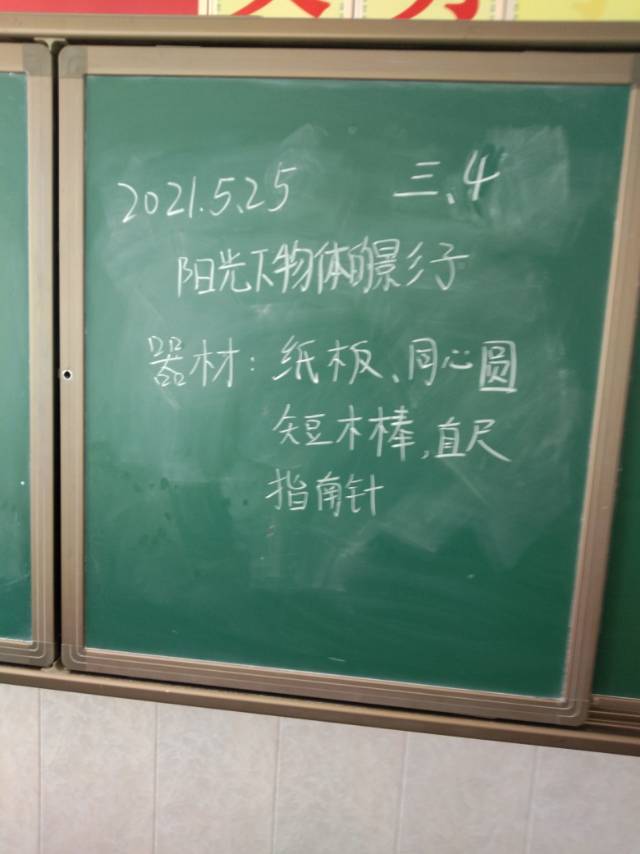 2021.5.25 三、4
阳光下物体的影子
器材：纸板、同心圆
短木棒，直尺
指南针